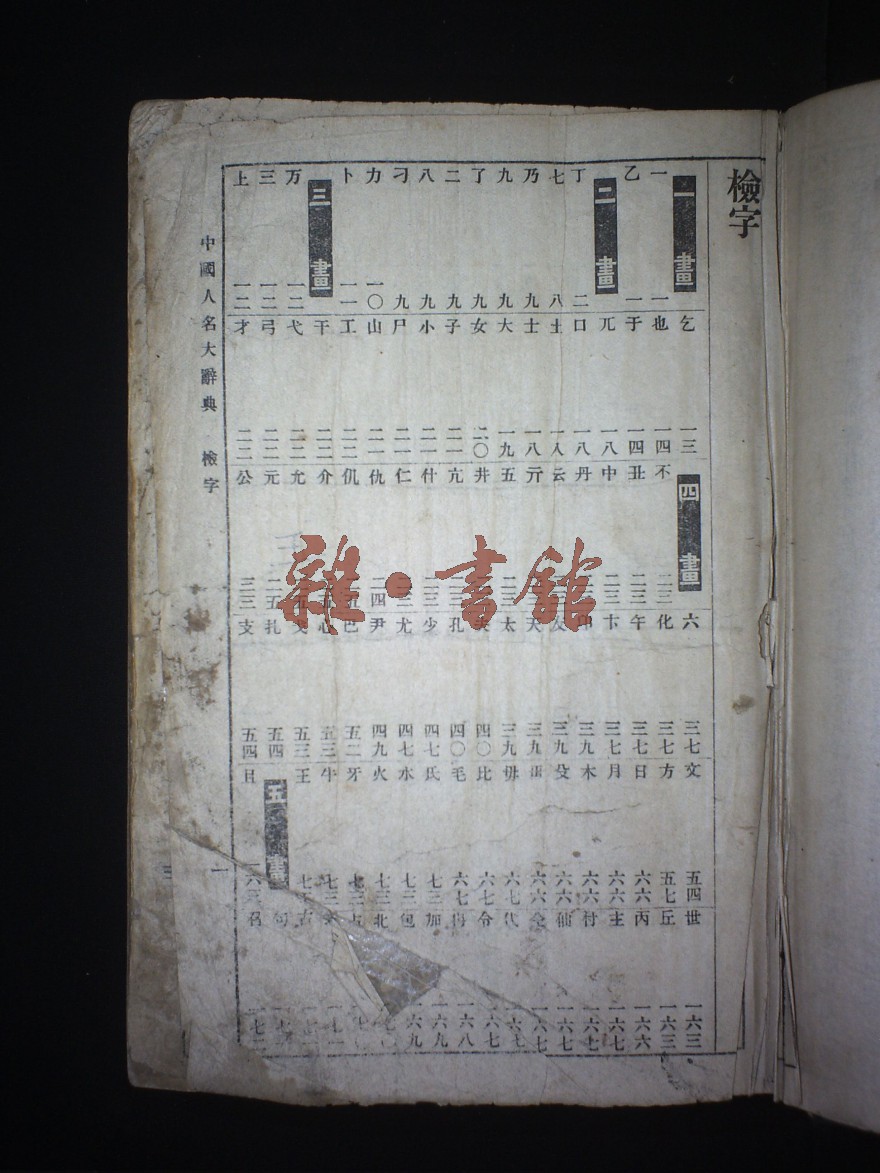 檢字
一畫
一 一
乙 一
二畫
丁 二
七 八
乃 九
九 九
了 九
二 九
八 九
刁 九
力 一〇
卜 一一
三畫
万 一二
三 一二
上 一二
乞 一三
也 一四
于 一四
兀 一八
口 一八
土 一八
士 一八
大 一九
女 二〇
子 二一
小 二一
尸 二一
山 二一
工 二二
干 二二
弋 二二
弓 二二
才 二二
四畫
不 二三
丑 二三
中 二三
丹
云
亓
五 二三
井
亢
什 二三
仁
仇 二四
仉 二五
介
允
元 二五
公 三三
六 三七
化 三七
午 三七
卞 三七
卬 三九
友 三九
天 三九
太 三九
夫 四〇
孔 四〇
少 四七
尤 四七
尹 四九
巴 五二
心 五三
戈 五三
扎 五四
支 五四
文 五四
方 五七
日 六六
月 六六
木 六六
殳 六六
六六
六七
比 六七
毛 六七
氏 七三
水 七三
火 七三
牙 七三
牛 七三
王
五畫
世 一六三
丘 一六三
丙 一六六
主 一六七
付 一六七
仙 一六七
仝 一六七
代 一六七
令 一六七
冉 一六八
加 一六九
包 一六九
北
占
古
句
召 一七二
中國人名大辭典 檢字 一
雜·書館